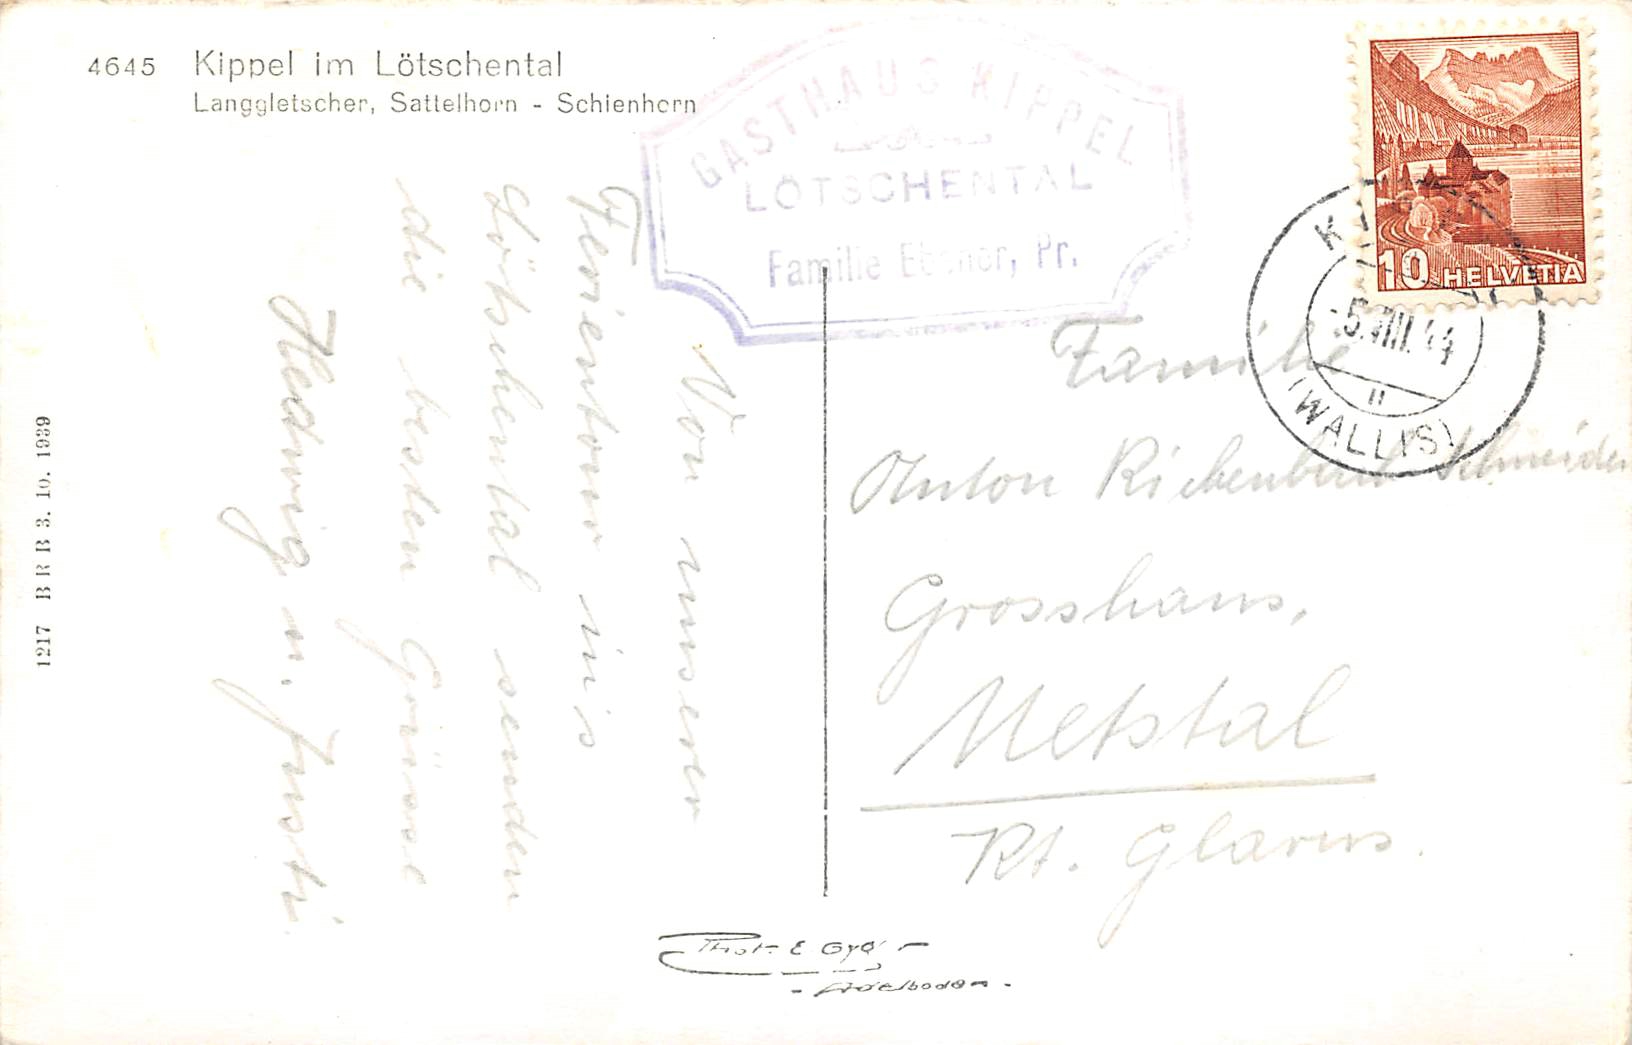 4645 Kippel im Lötschental
Langgletscher, Sattelhorn - Schienhorn
GASTHAUS KIPPEL
LÖTSCHENTAL
Familie Ebener, Pr.
10 HELVETIA
KIPPEL
-5.VIII.44
(WALLIS)
Von unserer
Ferientour ins
Lötschental senden
die besten Grüsse
Hedwig u. Justi
Familie
Anton Richenbach Schneider
Grosshaus,
Netstal
Kt. Glarus.
1217 BRB 3. 10. 1939
Phot. E. Gyger
- Adelboden -